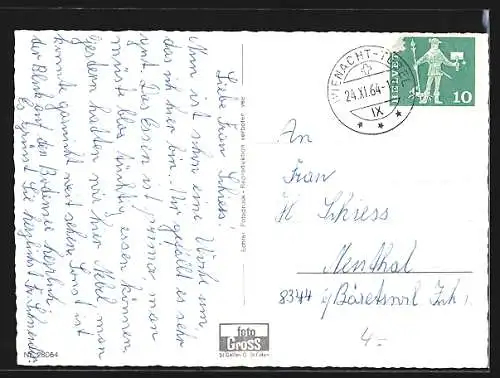 Liebe Frau Schiess!
Nun ist schon eine Woche um
das ich hier bin. Ihr gefällt es sehr
gut. Das Essen ist prima, man
müsste bloss tüchtig essen können.
Gestern hatten wir hier Nebel man
konnte garnicht weit sehen. Sonst ist
der Blick auf den Bodensee herrlich.
Es Grüsst Sie herzlichst Fr.
Echter Fotodruck - Reproduktion verboten
foto
Gross
St. Gallen
Nr. 28064
WIENACHT-TOBEL
24.XI.64-1
IX
HELVETIA
10
An
Frau
H. Schiess
Neuthal
8344 b/ Bäretswil Zch.
4.-